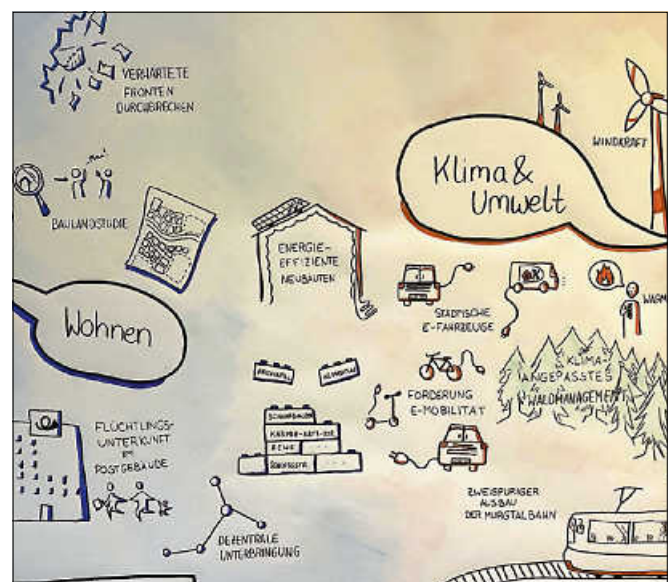 VERHÄRTETE
FRONTEN
DURCHBRECHEN
BAULANDSTUDIE
Wohnen
FLÜCHTLINGS-
UNTERKUNFT
IM
POSTGEBÄUDE
DEZENTRALE
UNTERBRINGUNG
ENERGIE-
EFFIZIENTE
NEUBAUTEN
Klima &
Umwelt
WINDKRAFT
STÄDTISCHE
E-FAHRZEUGE
WARN
KLIMA-
ANGEPASSTES
WALDMANAGEMENT
FÖRDERUNG
E-MOBILITÄT
ZWEISPURIGER
AUSBAU
DER MURGTALBAHN